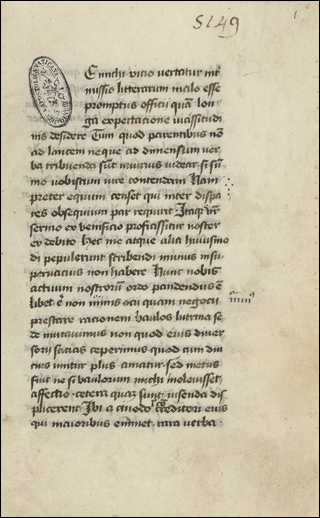 5249
E michi vicio vertatur int
missio litterarum malo esse
promptus officii quam lon-
ga expectacione vicissitudi
nis desidere Tum quod parentibus no
ad lancem neque ad dimensum ver
ba tribuenda sunt iniurius videar si sum
mo vobiscum iure contendam Nam
preter equum censet qui inter dispa
res obsequium par requirit Itaque
sermo ex beneficio proficiscitur noster
ex debito Hec me atque alia huiusmo
di pepulerunt scribendi munus insu
pervacuus non habere Nunc nobis
actuum nostrorum ordo pandendus e
libet e non minus ocii quam negocii
prestare racionem baulos lucrina se
de mutavimus non quod eius diver
sorii sacias ceperimus quod cum diu
cius visitur plus amatur sed metus
fuit ne si baulorum michi inolevisset
affectio cetera que sunt visenda dis
plicerent Ibi a creditori eius
qui maioribus eminet rara verba